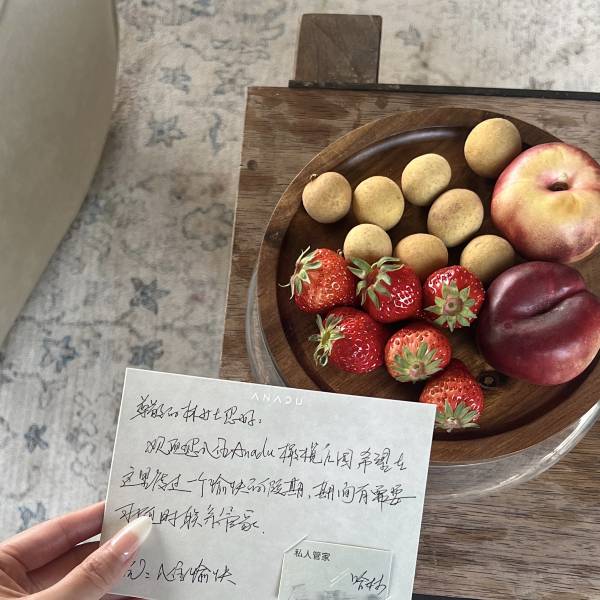 尊敬的林女士您好:
欢迎您入住Anadu橄榄庄园希望在
这里度过一个愉快的假期,期间有需要
可随时联系管家
祝:入住愉快
私人管家